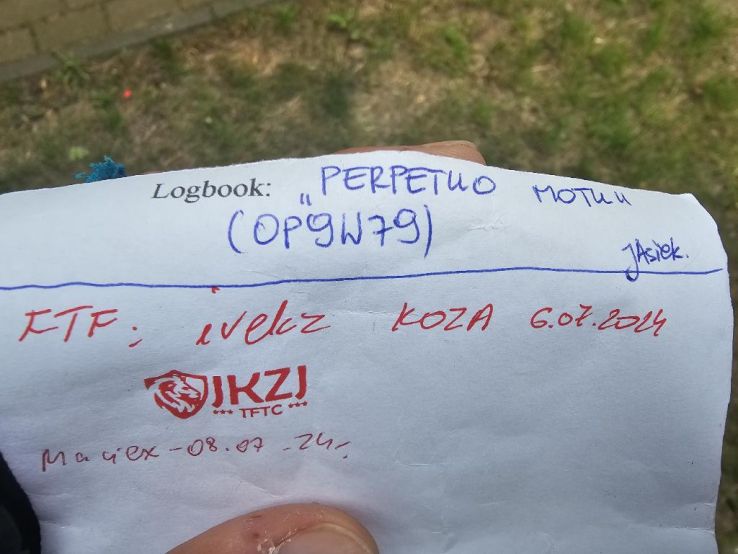 Logbook: „PERPETUO MOTUU
(OP9W79)
JAsiek.
FTF: ivekz KOZA 6.07.2024
JKZJ
*** TFTC ***
Maciex - 08.07.24r.